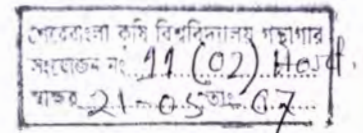 শেরেবাংলা কৃষি বিশ্ববিদ্যালয় গন্থাগার
সংযোজন নং 11 (02) Hort.
স্বাক্ষর 21-05 তাং 07